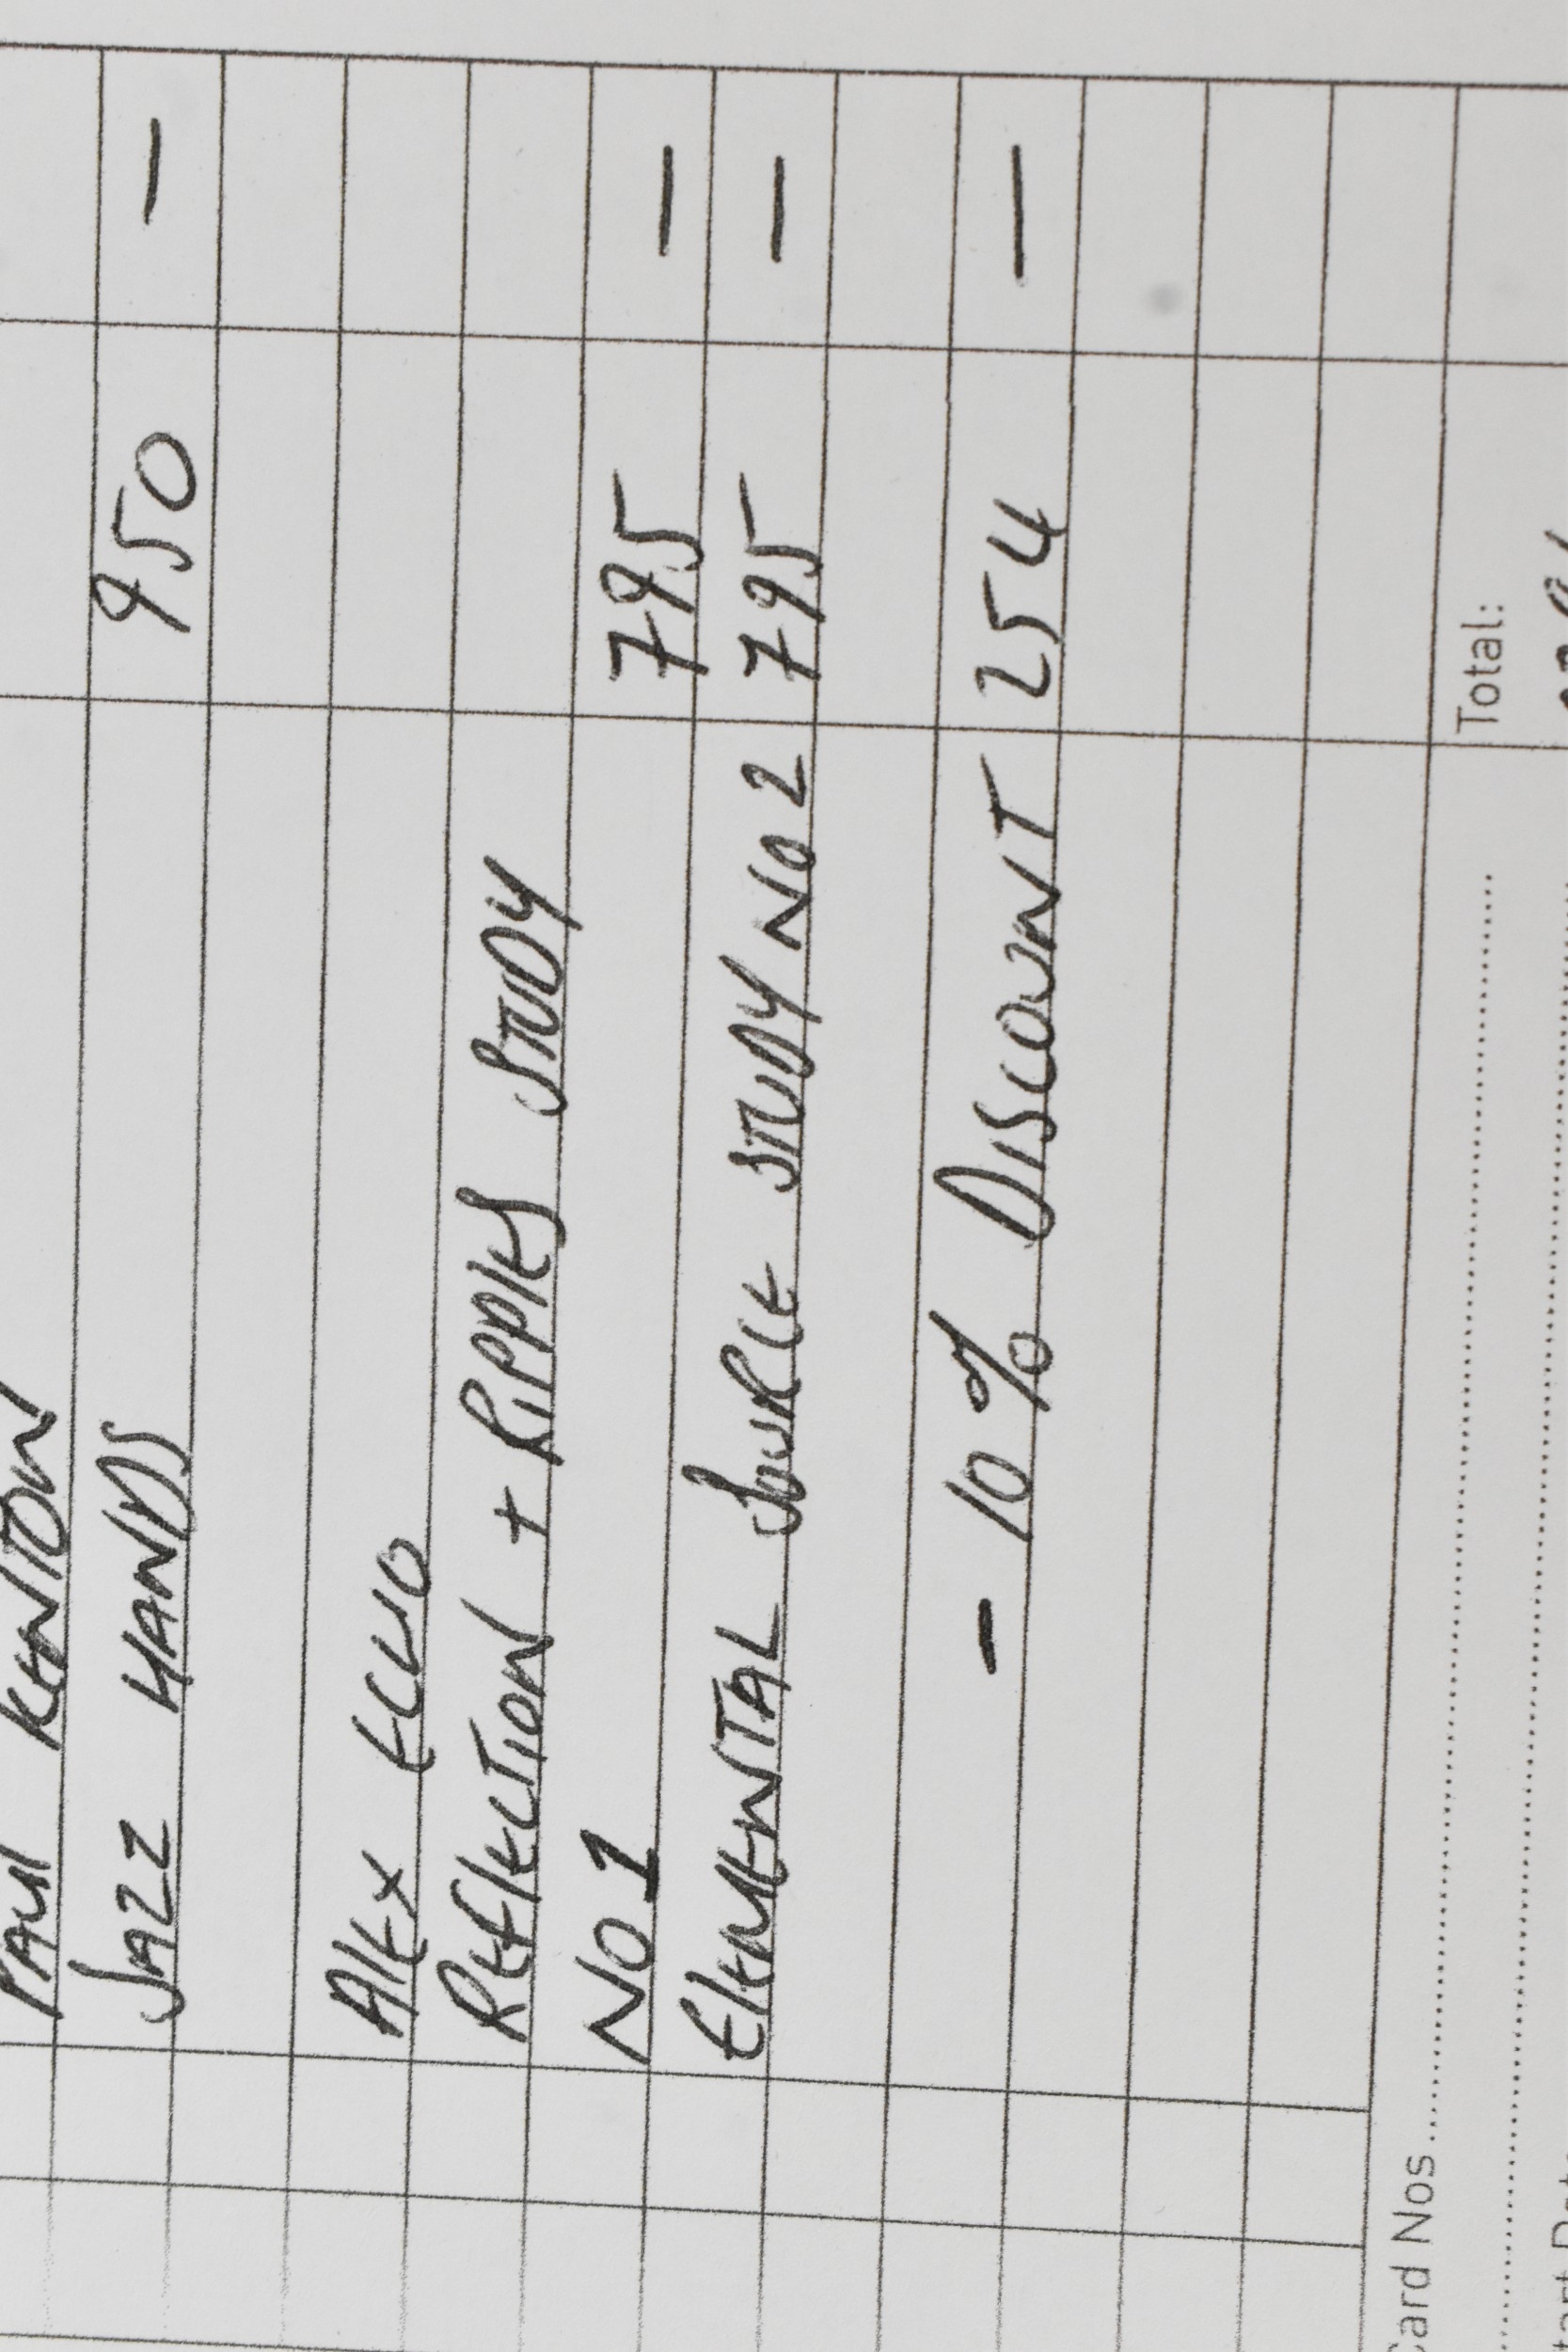 PAUL KENTON
JAZZ HANDS 950 —
ALEX ECHO
REFLECTION + RIPPLES STUDY
NO 1 795 —
ELEMENTAL SOURCE STUDY NO 2 795 —
- 10% DISCOUNT 254 —
Card Nos Total: